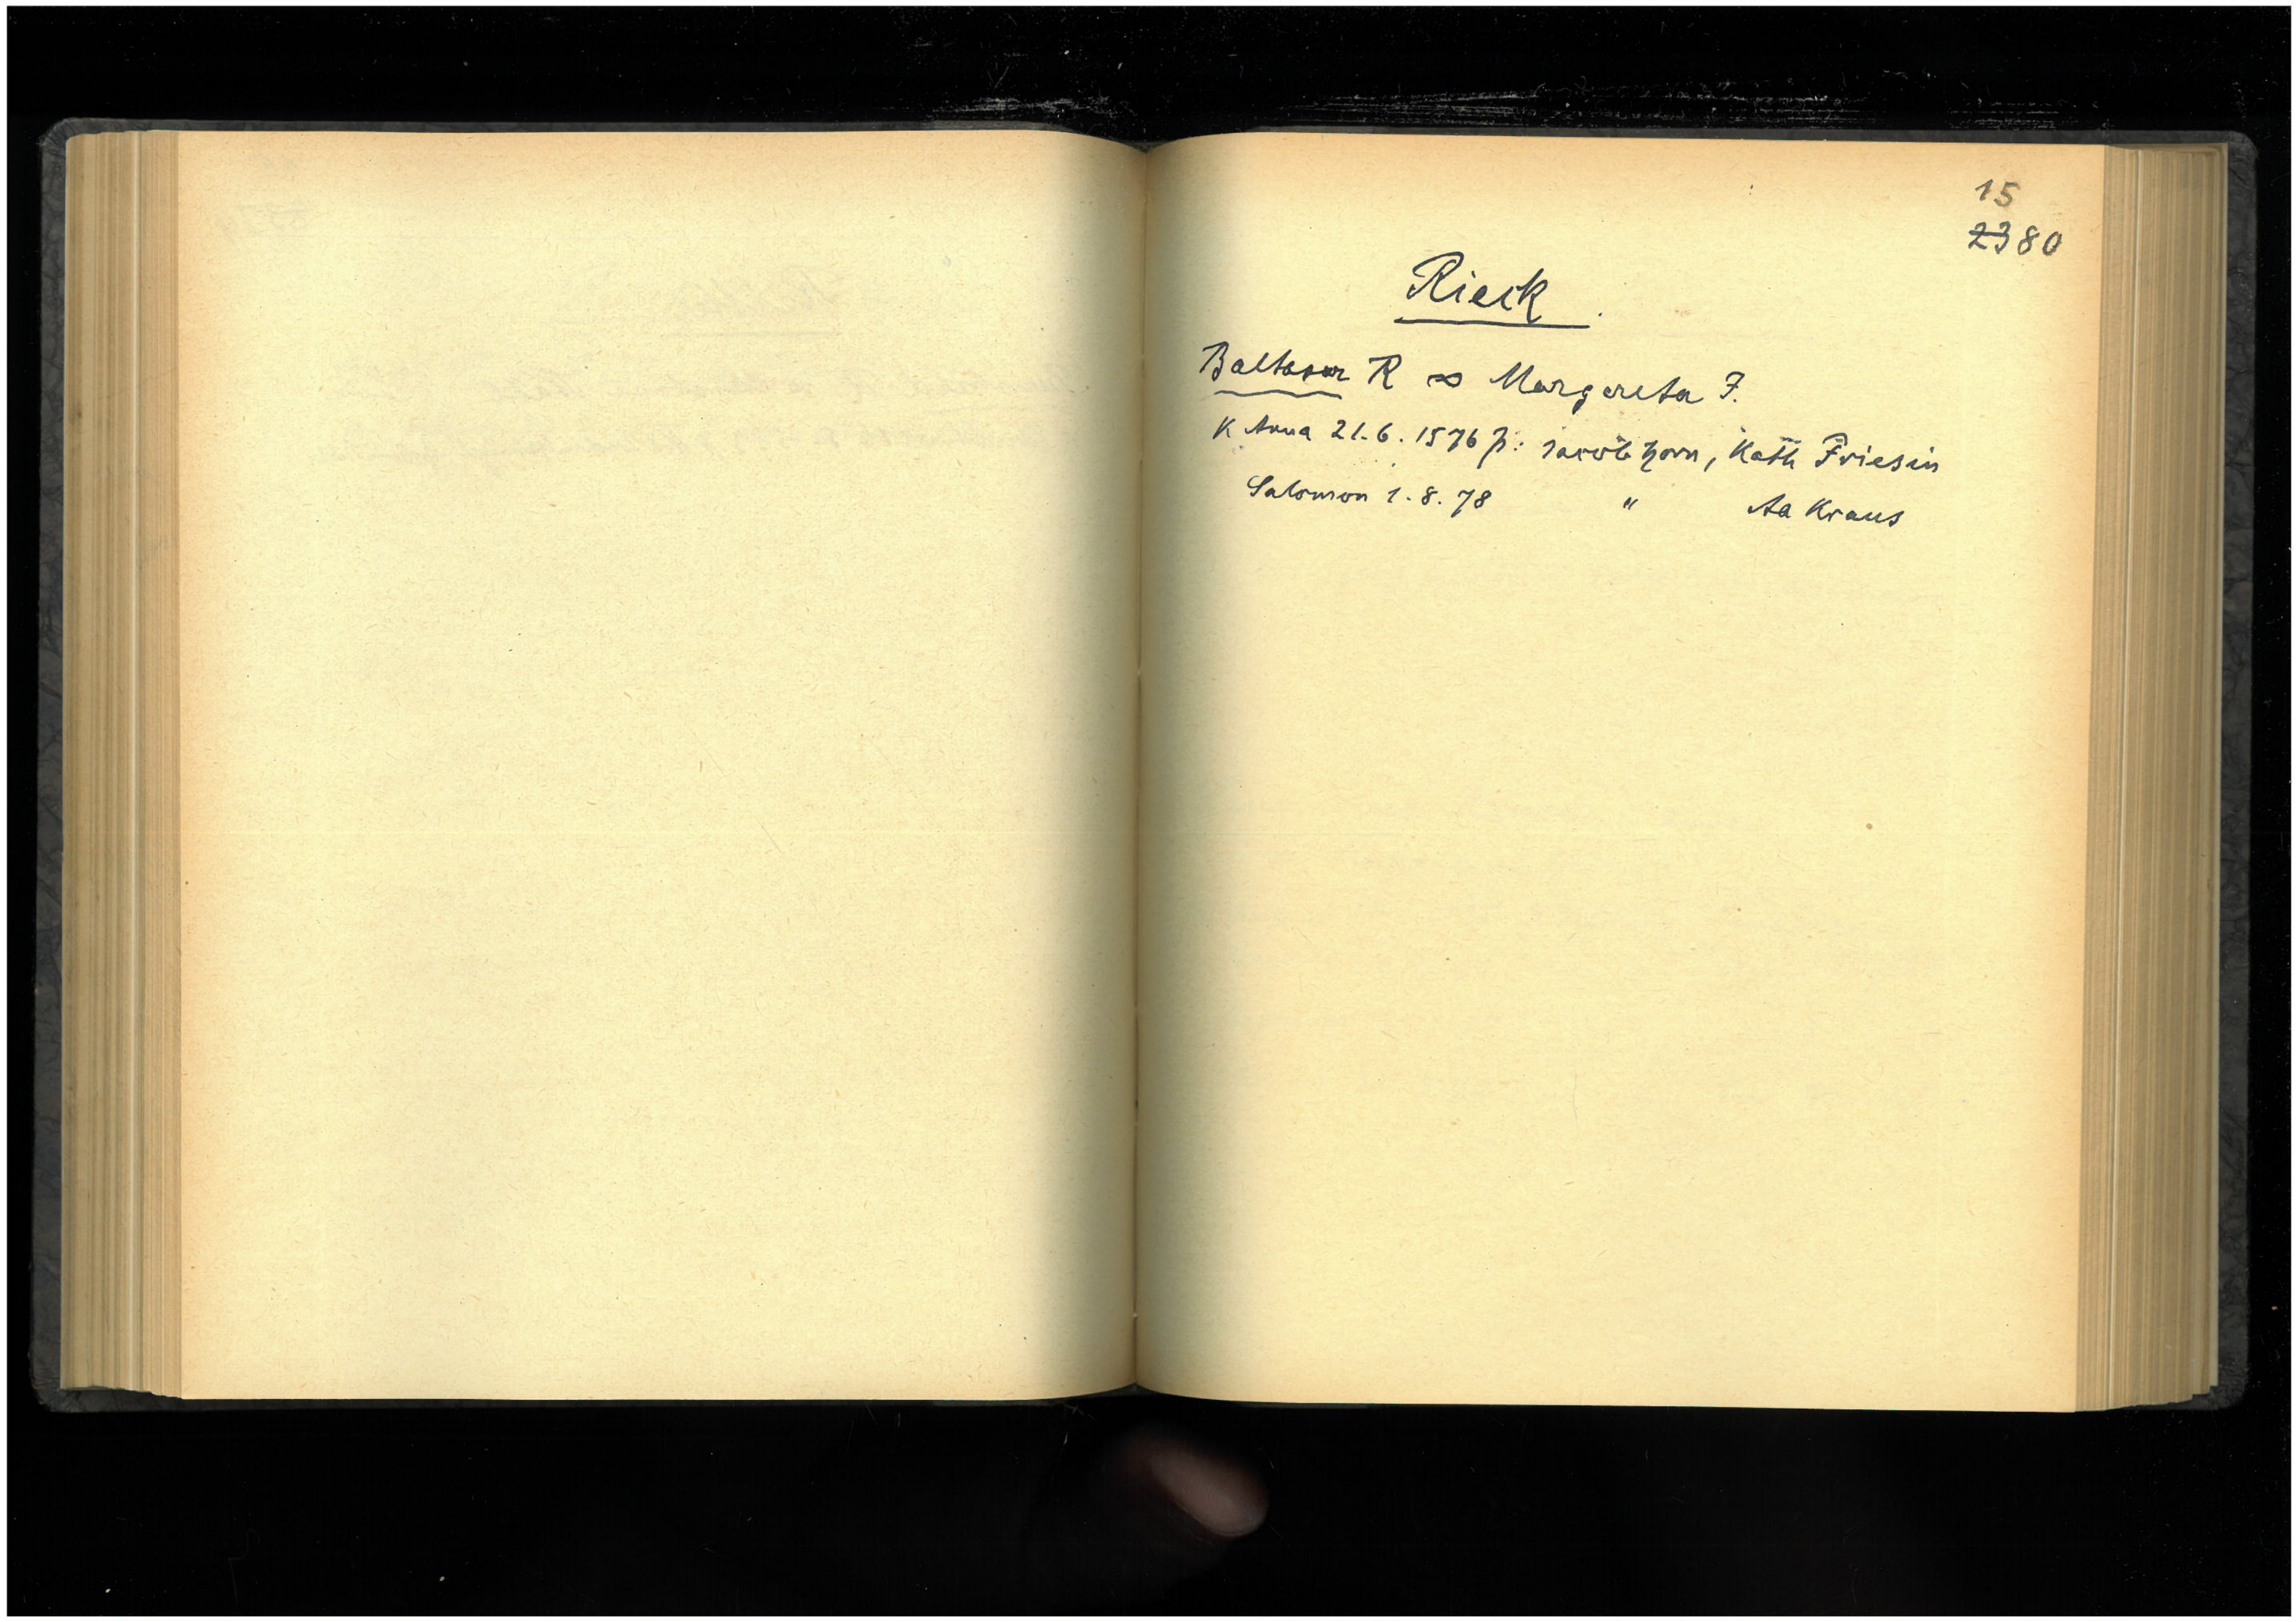 15
2380
Rieck
Baltasar R ∞ Margareta F.
K Anna 21.6.1576 p: Jacob Horn, Kath Friesin
Salomon 1.8.78 " Aa Kraus